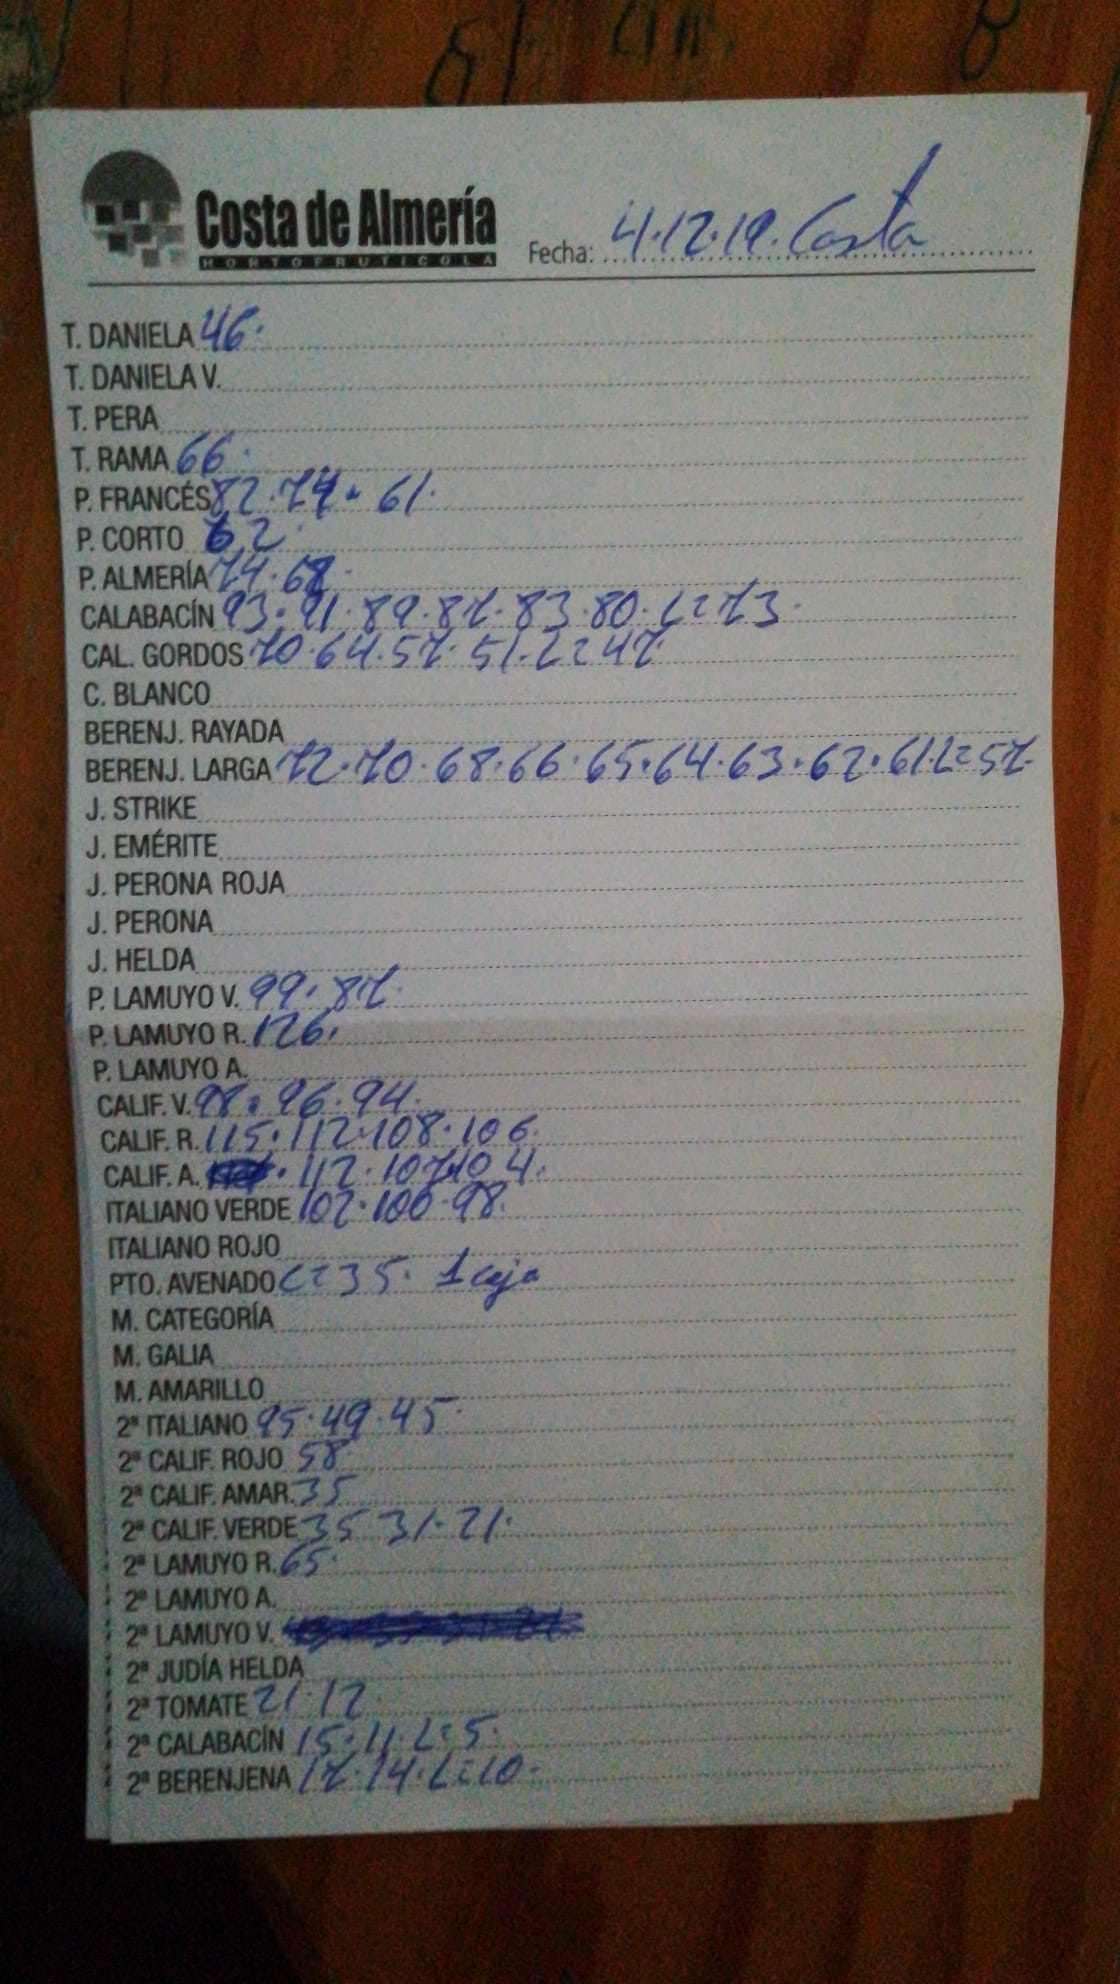 Costa de Almería
HORTOFRUTICOLA
Fecha: 4.12.19. Costa
T. DANIELA 46.
T. DANIELA V.
T. PERA
T. RAMA 66.
P. FRANCÉS 82.74. 61.
P. CORTO 62.
P. ALMERÍA 74.68.
CALABACÍN 93.91.89.87.83.80.L=73.
CAL. GORDOS 70.64.57.51.L=47.
C. BLANCO
BERENJ. RAYADA
BERENJ. LARGA 72.70.68.66.65.64.63.62.61.L=57.
J. STRIKE
J. EMÉRITE
J. PERONA ROJA
J. PERONA
J. HELDA
P. LAMUYO V. 99.87.
P. LAMUYO R. 126.
P. LAMUYO A.
CALIF. V. 98.96.94.
CALIF. R. 115.112.108.106.
CALIF. A. 112.107.104.
ITALIANO VERDE 102.100.98.
ITALIANO ROJO
PTO. AVENADO L=35. 1 caja
M. CATEGORÍA
M. GALIA
M. AMARILLO
2ª ITALIANO 95.49.45.
2ª CALIF. ROJO 58
2ª CALIF. AMAR. 35
2ª CALIF. VERDE 35 31.21.
2ª LAMUYO R. 65.
2ª LAMUYO A.
2ª LAMUYO V.
2ª JUDÍA HELDA
2ª TOMATE 21.12
2ª CALABACÍN 15.11.L=5.
2ª BERENJENA 17.14.L=10.